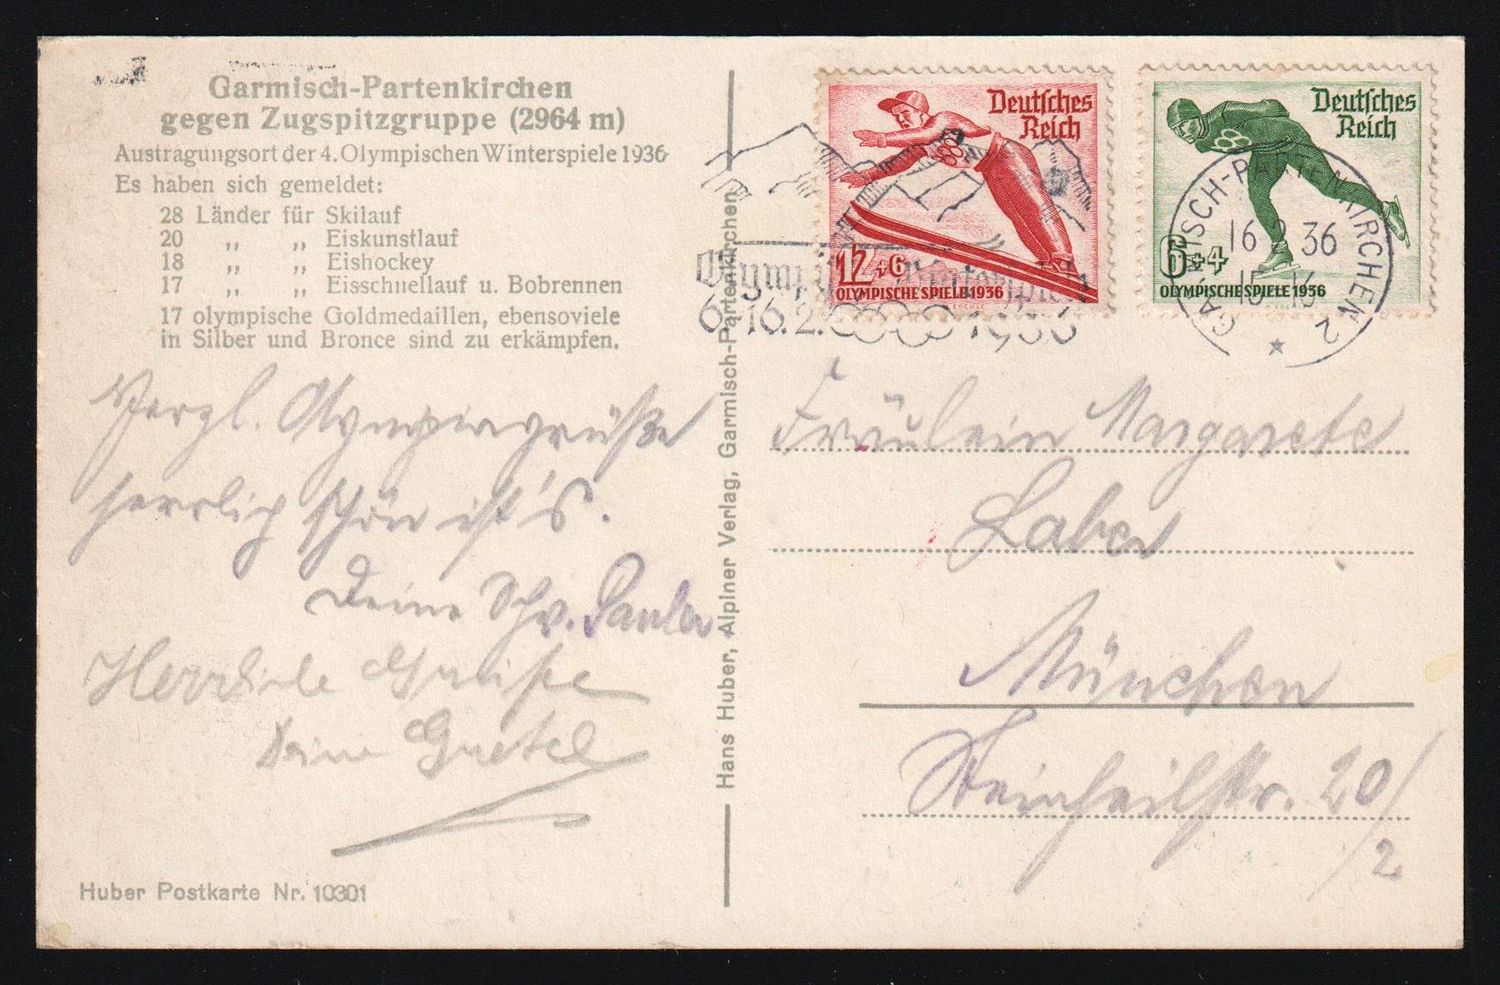 Garmisch-Partenkirchen
gegen Zugspitzgruppe (2964 m)
Austragungsort der 4. Olympischen Winterspiele 1936
Es haben sich gemeldet:
28 Länder für Skilauf
20 „ „ Eiskunstlauf
18 „ „ Eishockey
17 „ „ Eisschnellauf u. Bobrennen
17 olympische Goldmedaillen, ebensoviele
in Silber und Bronce sind zu erkämpfen.
Herzl. Olympiagrüße
herrlich schön ist's.
Deine Schw. Paula
Herzliche Grüße
Deine Gretel
Huber Postkarte Nr. 10301
Hans Huber, Alpiner Verlag, Garmisch-Partenkirchen
Deutsches
Reich
12+6
OLYMPISCHE SPIELE 1936
Deutsches
Reich
6+4
OLYMPISCHE SPIELE 1936
Olympische Winterspiele
6.-16.2. 1936
GARMISCH-PARTENKIRCHEN 2
16 2 36
15-16
Fräulein Margarete
Laber
München
Steinheilstr. 20/2